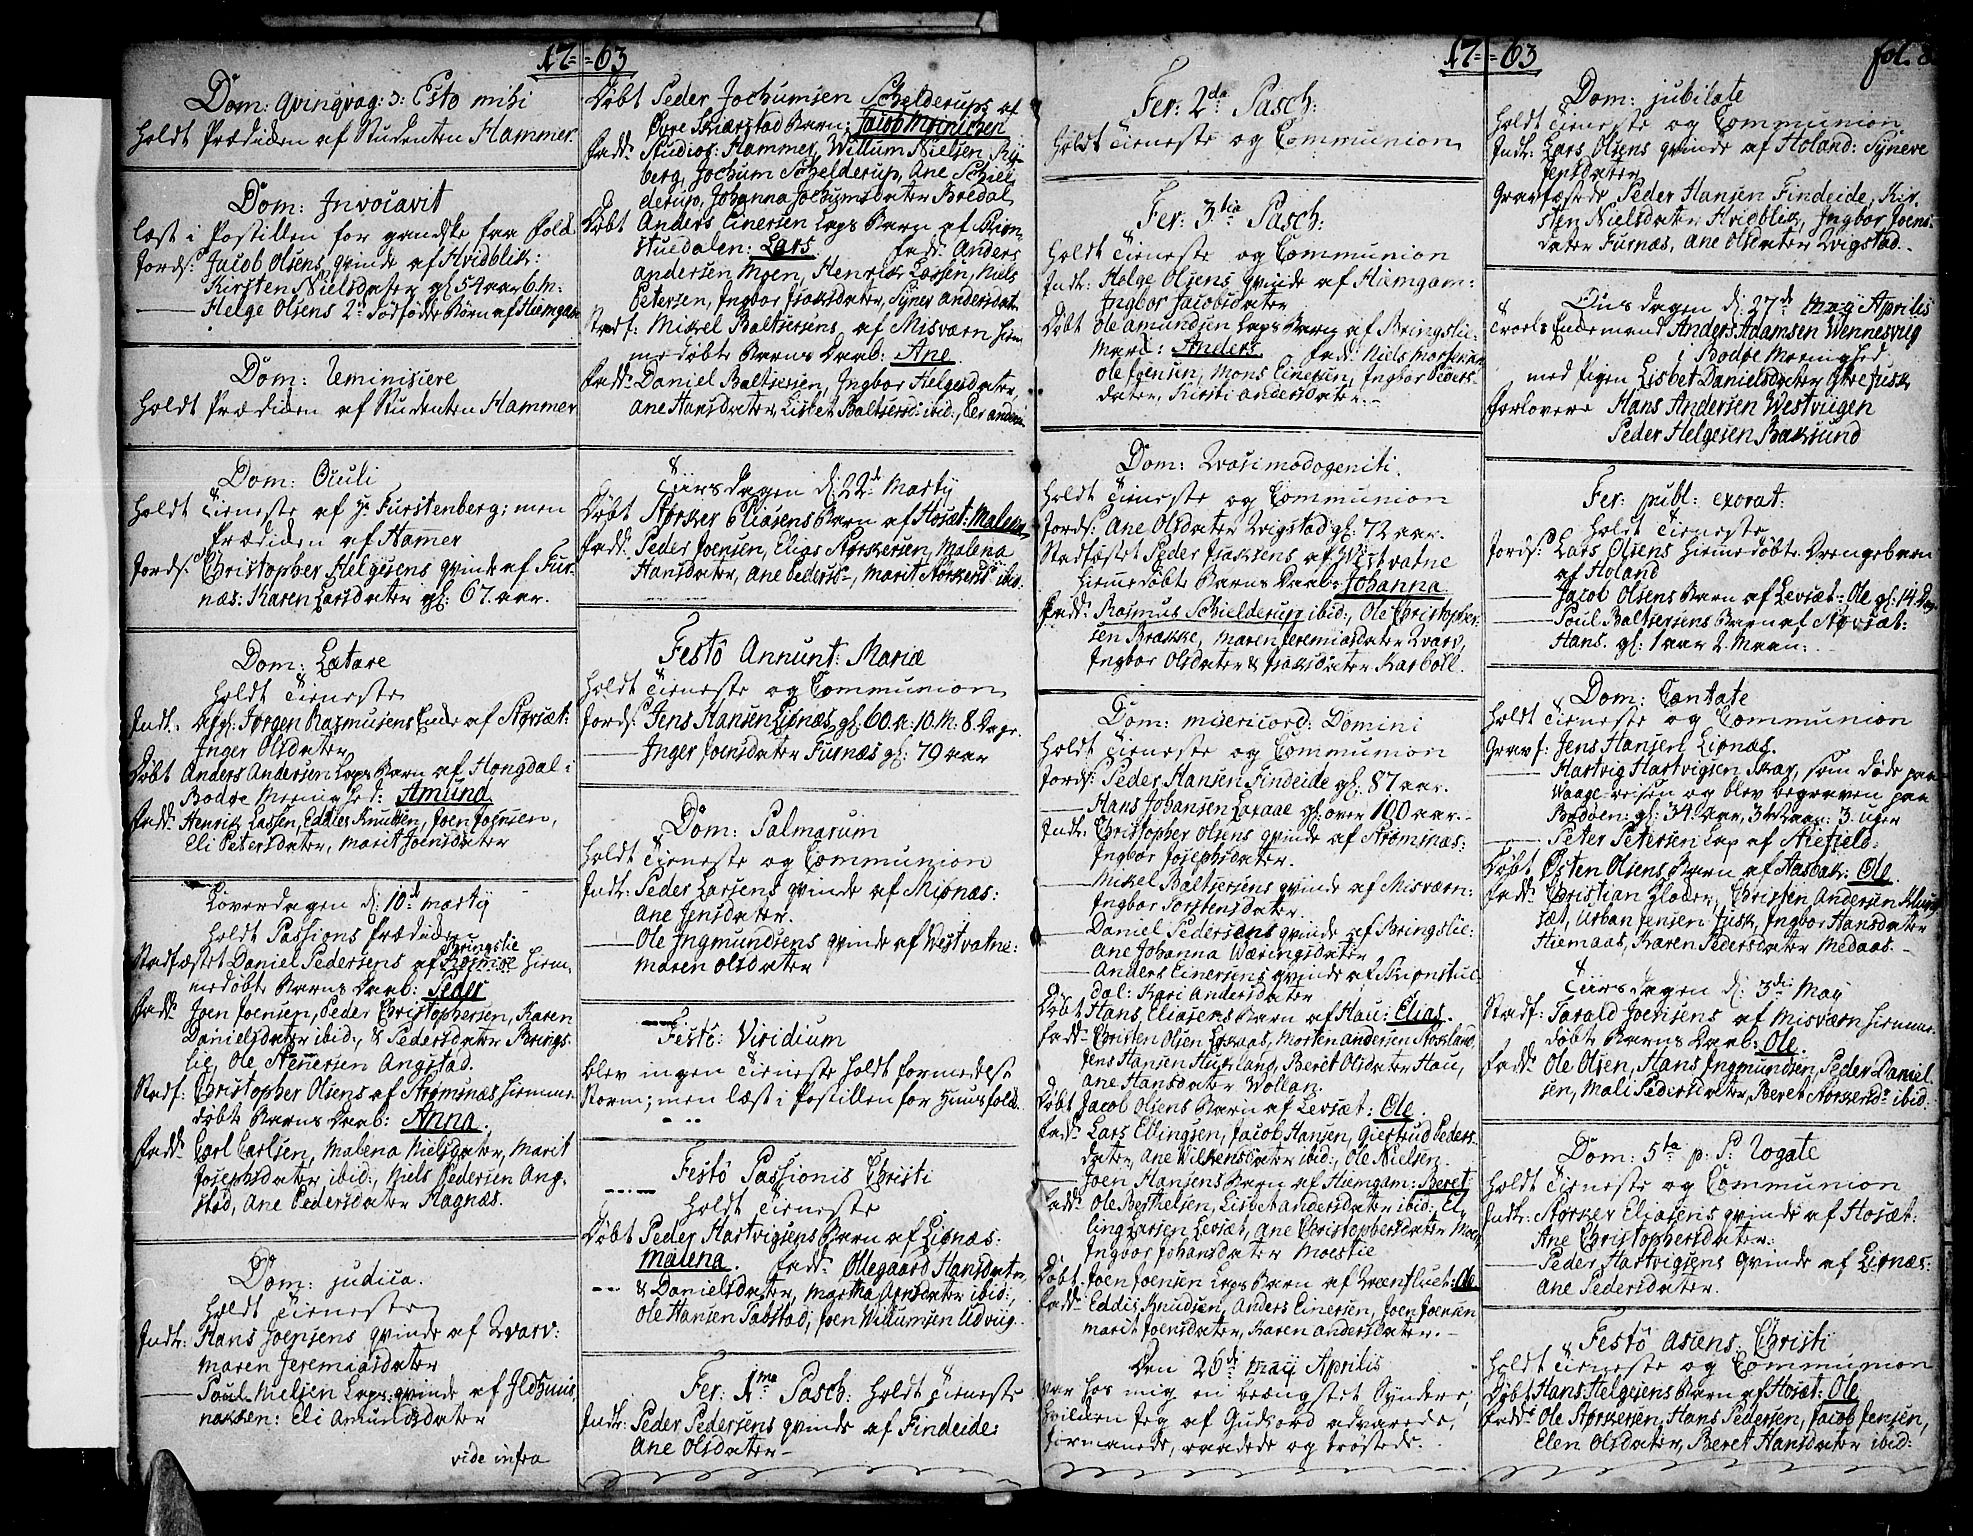 17=63
Dom: Qvingvag: ɔ: Esto mihi
Holdt Prædiken af Studenten Hammer.
Dom: Invocavit
læst i Postillen for
Jords: Jacob Olsens qvinde af Hvidblik:
Kirsten Nielsdater gl: 54 aar 6. m:
—— Helge Olsens 2de dødfødte Børn af Hiemgam
Dom: Reminiscere
Holdt Prædiken af Studenten Hammer
Dom: Oculi
Holdt Tieneste af Hr Furstenberg; men
Prædiken af Ham̅er
Jords: Christopher Helgesens qvinde af Fur-
næs: Karen Larsdater gl: 67. aar.
Dom: Lætare
Holdt Tieneste
Indl: Afg: Jørgen Rasmusens Enke af Størsæt:
Inger Olsdater
Døbt Anders Andersen Laps Barn af Hongdal i
Bodøe Menighed: Amund
Fadd: Henrik Lassen, Eddies Knutsen, Joen Joensen,
Eli Petersdater, Marit Joensdater
Løverdagen d: 10de Martij
Holdt Passions Prædiken
Stadfæstet Daniel Pedersens af Bringslie hiem-
medøbte Barns Daab: Peder
Fadd: Joen Joensen, Peder Christophersen, Karen
Danielsdater ibid:, & Pedersdater Brings-
lie, Ole Stenersen Angstad.
Stadf: Christopher Olsens af Strømsnæs hiemme-
døbte Barns Daab: Anna.
Fadd: Carl Carlsen, Malena Nielsdater, Marit
Josephsdater, ibid:, Niels Pedersen Ang-
stad, Ane Pedersdater Hagnæs.
Dom: Judica.
Holdt Tieneste
Indl: Hans Joensens qvinde af Qvarv:
Maren Jeremiasdater
—— Poul Nielsen Laps qvinde af Ildhuus-
nakken: Eli Amundsdater
vide infra
Døbt Peder Jochumsen Schelderups af
Øvre Skierstad Barn: Jacob Meinichen
Fadd: Studios: Hammer, Willum Nielsen Ry-
berg, Jochum Schelderup, Ane Schiel-
derup, Johanna Jochumsdater Bredal
Døbt Anders Einersen Laps Barn af Brion-
stuedalen: Lars. Fadd: Anders
Andersen Moen, Henrik Lassen, Niels
Petersen, Ingbor Isaksdater, Synev Andersdat:
Stadf: Mikel Baltsersens af Misværn hiem-
medøbte Barns Daab: Ane.
Fadd: Daniel Baltsersen, Ingbor Helgesdater,
Ane Hansdater, Lisbet Baltsersd: ibid:, Per
Tiirsdagen d: 22de Martij
Døbt Størker Eliasens Barn af Hosæt: Malena
Fadd: Peder Joensen, Elias Størkersen, Malena
Hansdater, Ane Peders–, Marit Størkersd: ibid:
Festô Annunt: Mariæ
Holdt Tieneste og Communion
Jords: Jens Hansen Liønæs gl: 60. a: 10. M: 8. Dage.
—— Inger Joensdater Furnæs gl: 79 aar
Dom: Palmarum
Holdt Tieneste og Communion
Indl: Peder Larsens qvinde af Miønæs:
Ane Jensdater.
—— Ole Ingmundsens qvinde af Westvatne:
Maren Olsdater
Festô: Viridium
blev ingen Tieneste holdt formedelst
Storm; men læst i Postillen for Huusfolk.
Festô Passionis Christi
Holdt Tieneste
Døbt Peder Hartvigsens Barn af Liønæs:
Malena. Fadd: Ollegaard Hansdater,
& Danielsdater, Martha Arnsdater ibid:,
Ole Hansen Tabstad, Joen Willumsen Udviig.
Fer: 1ma Pasch: Holdt Tieneste
Indl: Peder Pedersens qvinde af Findeide:
Ane Olsdater –
17=63
fol. 8
Fer: 2da Pasch:
Holdt Tieneste og Communion
Fer: 3tia Pasch:
Holdt Tieneste og Communion
Indl: Helge Olsens qvinde af Hiemgam:
Ingbor Jacobsdater
Døbt Ole Amundsen Laps Barn af Bringslie-
mark: Anders. Fad: Niels Mortensen
Ole Joensen, Mons Einersen, Ingbor Peders-
dater, Kirsti Andersdater. –
Dom: Qvasimodogeniti.
Holdt Tieneste og Communion
Jords: Ane Olsdater Qvigstad gl: 72 aar.
Stadfæstet Peder Isaksens af Westvatne
hiemmedøbte Barns Daab: Johanna
Fadd: Rasmus Schielderup ibid:, Ole Christopher-
sen Brække, Maren Jeremiasdater Qvarv,
Ingbor Olsdater & Isaksdater Karboll.
Dom: Misericord: Domini
Holdt Tieneste og Communion
Jords: Peder Hansen Findeide gl: 87 aar.
—— Hans Johansen Lexaae gl: over 100 aar. –
Indl: Christopher Olsens qvinde af Strømsnæs:
Ingbor Josephsdater.
—— Mikel Baltsersens qvinde af Misværn:
Ingbor Torstensdater.
—— Daniel Pedersens qvinde af Bringslie:
Ane Johanna Wæringsdater
—— Anders Einersens qvinde af Brionstue-
dal: Kari Andersdater
Døbt Hans Eliasens Barn af Hau: Elias.
Fadd: Christen Olsen Lexaas, Morten Andersen Stokland,
Jens Hansen Huskland, Beret Olsdater Hau,
Ane Hansdater Wollan.
Døbt Jacob Olsens Barn af Levsæt: Ole.
Fadd: Lars Ellingsen, Jacob Hansen, Giertrud Peders-
dater, Ane Wilkensdater ibid:, Ole Nielsen.
—— Joen Hansens Barn af Hiemgam: Beret
Fadd: Ole Berthelsen, Lisbet Andersdater ibid: El-
ling Larsen Levsæt, Ane Christophersdater Moen
Ingbor Johansdater Moestie
Døbt Joen Joensen Laps Barn af Grønfluet: Ole
Fadd: Eddis Knudsen, Anders Einersen, Joen Joensen
Marit Joensdater, Karen Andersdater. –
Den 26de Maij Aprilis
var hos mig en beængstet Syndere,
hvilken jeg af Guds ord advarede,
formanede, raadede og trøstede.
Dom: Jubilate
Holdt Tieneste og Communion
Indl: Lars Olsens qvinde af Holand: Syneve
Jensdater
Gravfæstede Peder Hansen Findeide, Kir-
sten Nielsdater Hvidblik, Ingbor Joens-
dater Furnæs, Ane Olsdater Qvigstad. –
Tiirsdagen d: 27de Maij Aprilis
Troel: Enkemand Anders Adamsen Wennesviig
i Bodøe Menighed
med Pigen Lisbet Danielsdater Ytre Jusk
Forlovere Hans Andersen Westviigen
Peder Helgesen Baksund
Fer: publ: exorat:
Holdt Tieneste
Jords: Lars Olsens hiemmedøbte Drengebarn
af Holand
—— Jacob Olsens Barn af Levsæt: Ole gl: 14. Dag:
—— Poul Baltsersens Barn af Størsæt:
Hans. gl: 1 aar 2. Maan: .
Dom: Cantate
Holdt Tieneste og Communion
Gravf: Jens Hansen Liønæs.
—— Hartvig Hartvigsen Skar, som døde paa
Waage-reisen og blev begraven paa
Bodøen: gl: 34. aar, 3. Maan: 3. uger
—— Peter Petersen Lap af Stiefield:
Døbt Østen Olsens Barn af Aasbak: Ole.
Fadd: Christian Glader, Christen Andersen Klung-
sæt, Urban Jensen Jusk, Ingbor Hansdater
Hiemaas, Karen Pedersdater Medaas. –
Tiirsdagen d: 3die Maij
Stadf: Tarald Joensens af Misværn hiemme-
døbte Barns Daab: Ole.
Fadd: Ole Olsen, Hans Ingmundsen, Peder Daniel-
sen, Mali Pedersdater, Beret Størkersdr ibid:
Dom: 5ta p: P: Rogate
Holdt Tieneste og Communion
Indl: Størker Eliasens qvinde af Hosæt:
Ane Christophersdater:
—— Peder Hartvigsens qvinde af Liønæs:
Ane Pedersdater.
Festô Ascens: Christi
Holdt Tieneste og Communion
Døbt Hans Helgesens Barn af Hosæt: Ole
Fadd: Ole Størkersen, Hans Pedersen, Jacob Jensen,
Elen Olsdater, Beret Hansdater ibid: